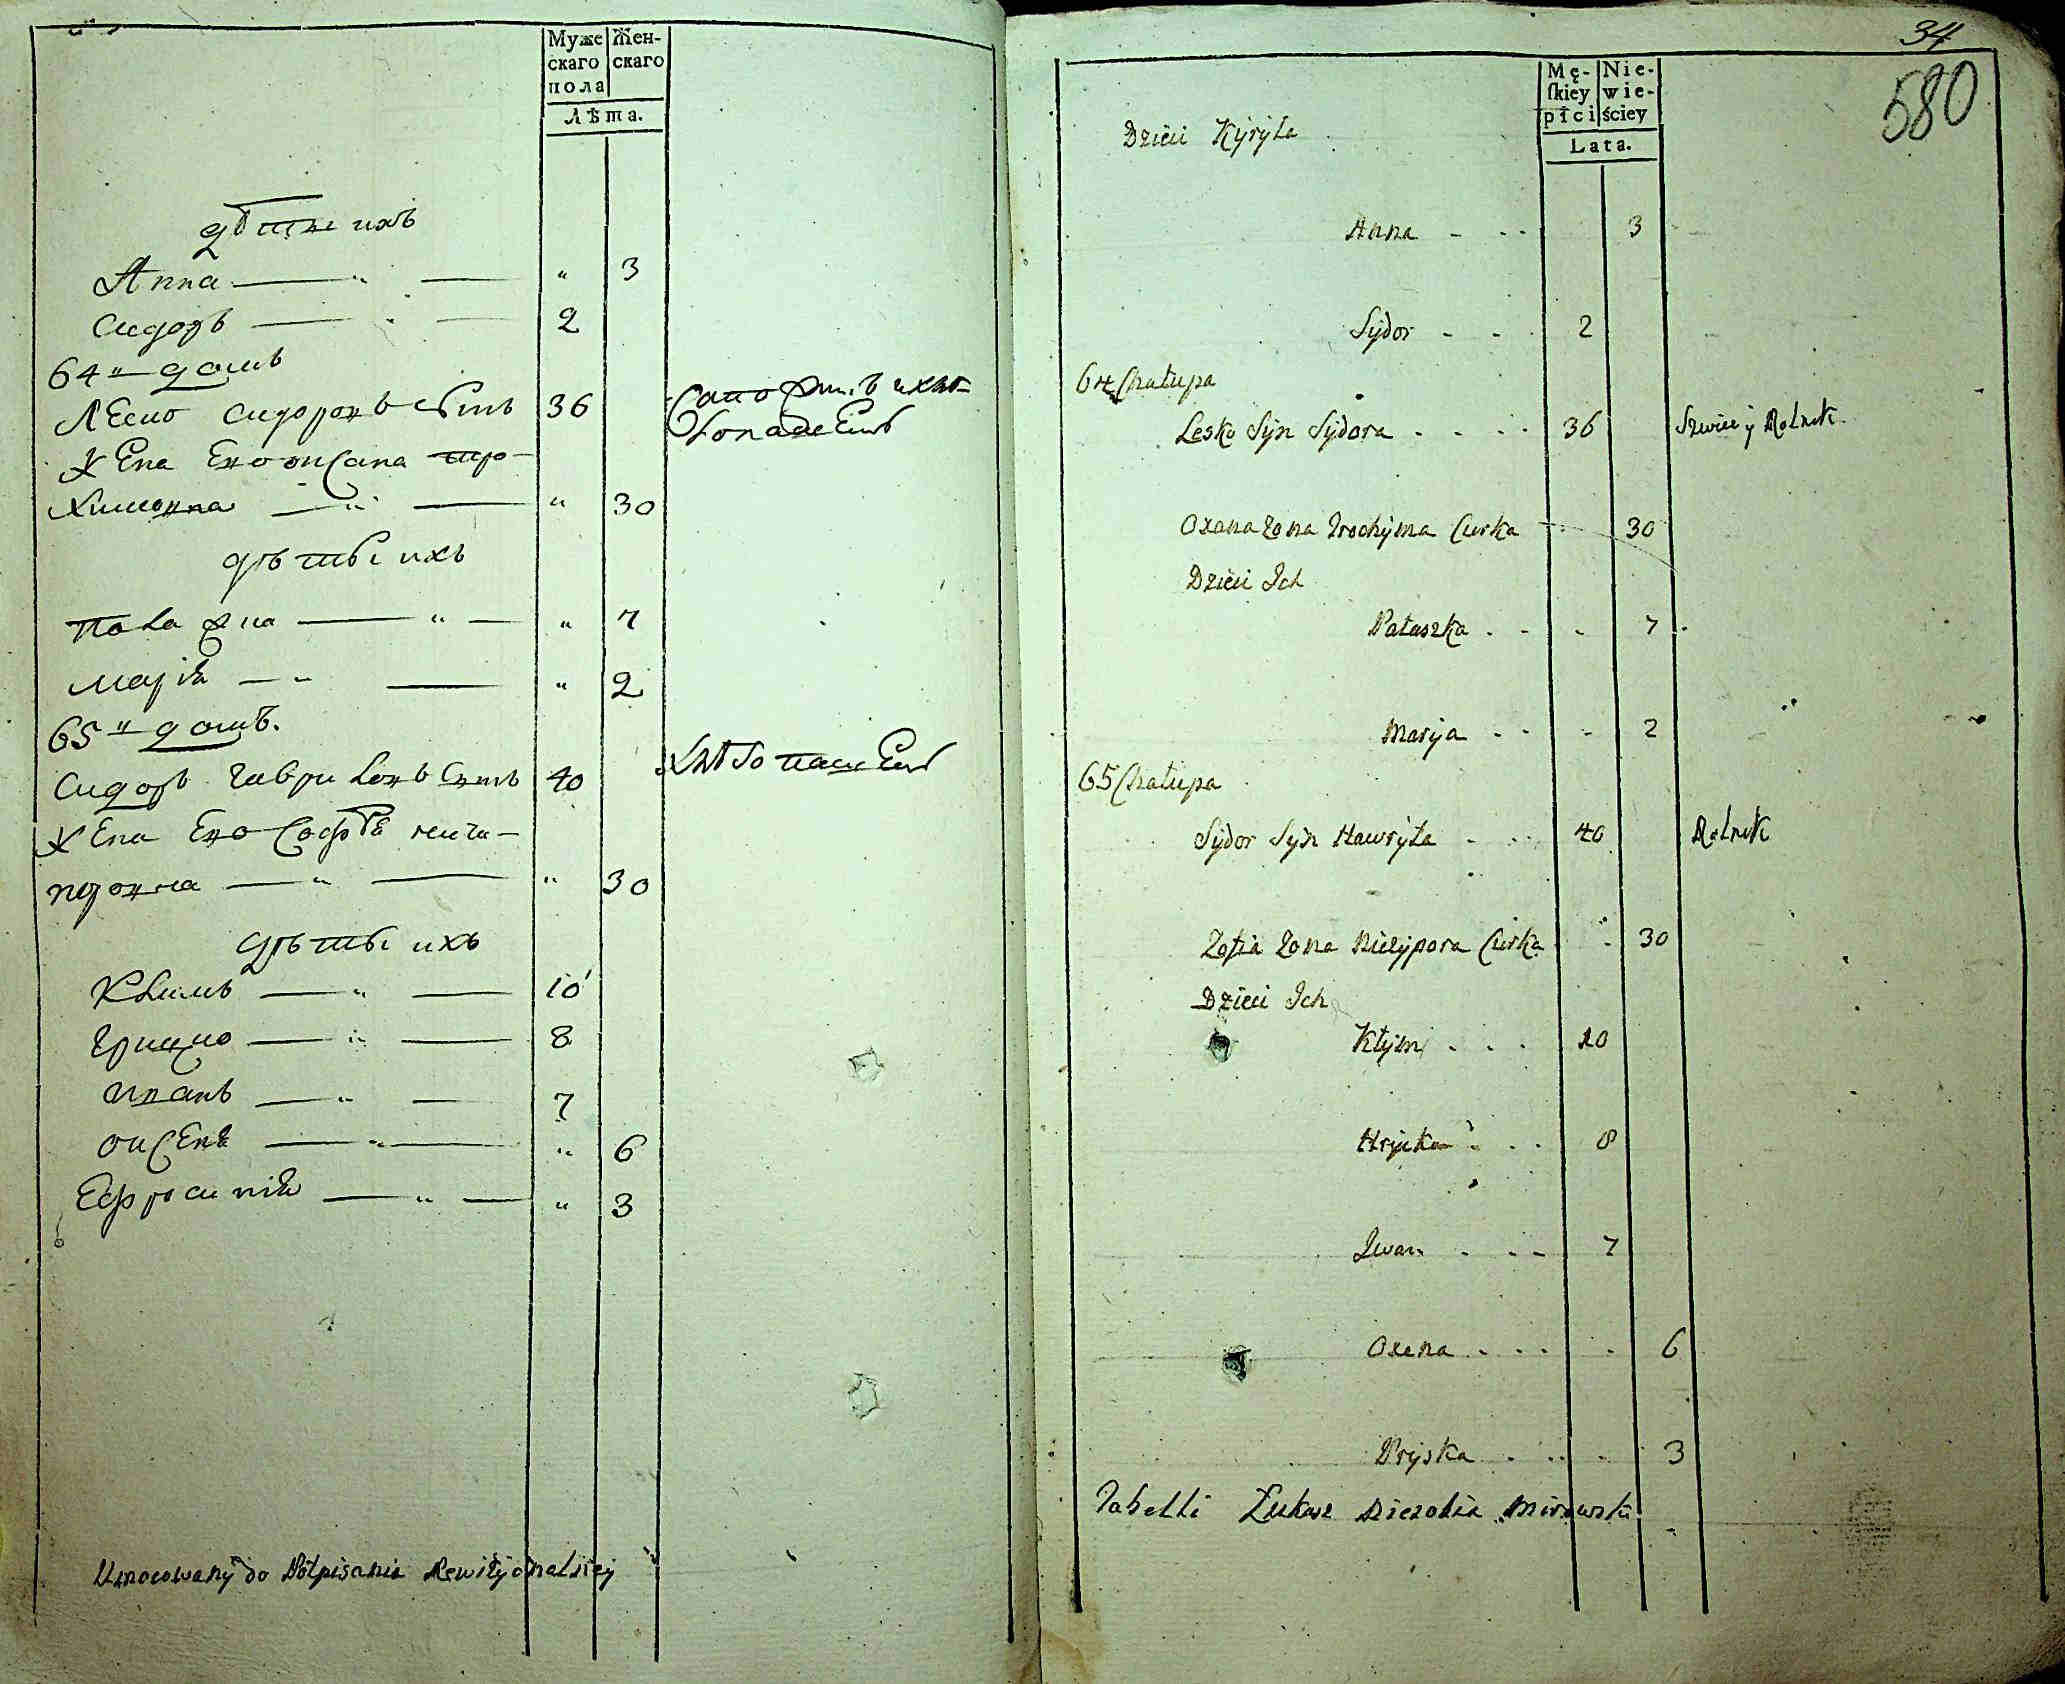 Муже
скаго
пола
Жен-
скаго
Лѣта.
дѣти ихъ
Анна " 3
Сидоръ 2
64 й домъ
Леско Сидоровъ Сынъ 36 Сапожникъ и хлѣ-
бопашецъ
Жена Его Оксана тро-
химовна " 30
дѣти ихъ
Палажка " 7
Марія " 2
65 й домъ.
Сидоръ гавриловъ Сынъ 40 хлѣбопашецъ
Жена Его Софія ничи-
поровна " 30
дѣти ихъ
Климъ 10
Грицко 8
Иванъ 7
Оксеня " 6
Ефросинія " 3
Umocowany do Potpisania Rewizyonalney
34
580
Mę-
ſkiey
płci
Nie-
wie-
ściey
Lata.
Dzieci Kyryła
Anna 3
Sydor 2
64 Chałupa
Lesko Syn Sydora 36 Szwiec y Rolnik
Oxana Zona Trochyma Curka 30
Dzieci Ich
Pałaszka 7
Marya 2
65 Chałupa
Sydor Syn Hawryła 40 Rolnik
Zofia Zona Niczypora Curka 30
Dzieci Ich
Kłym 10
Hrycko 8
Iwan 7
Oxena 6
Pryska 3
Tabelli Łukasz